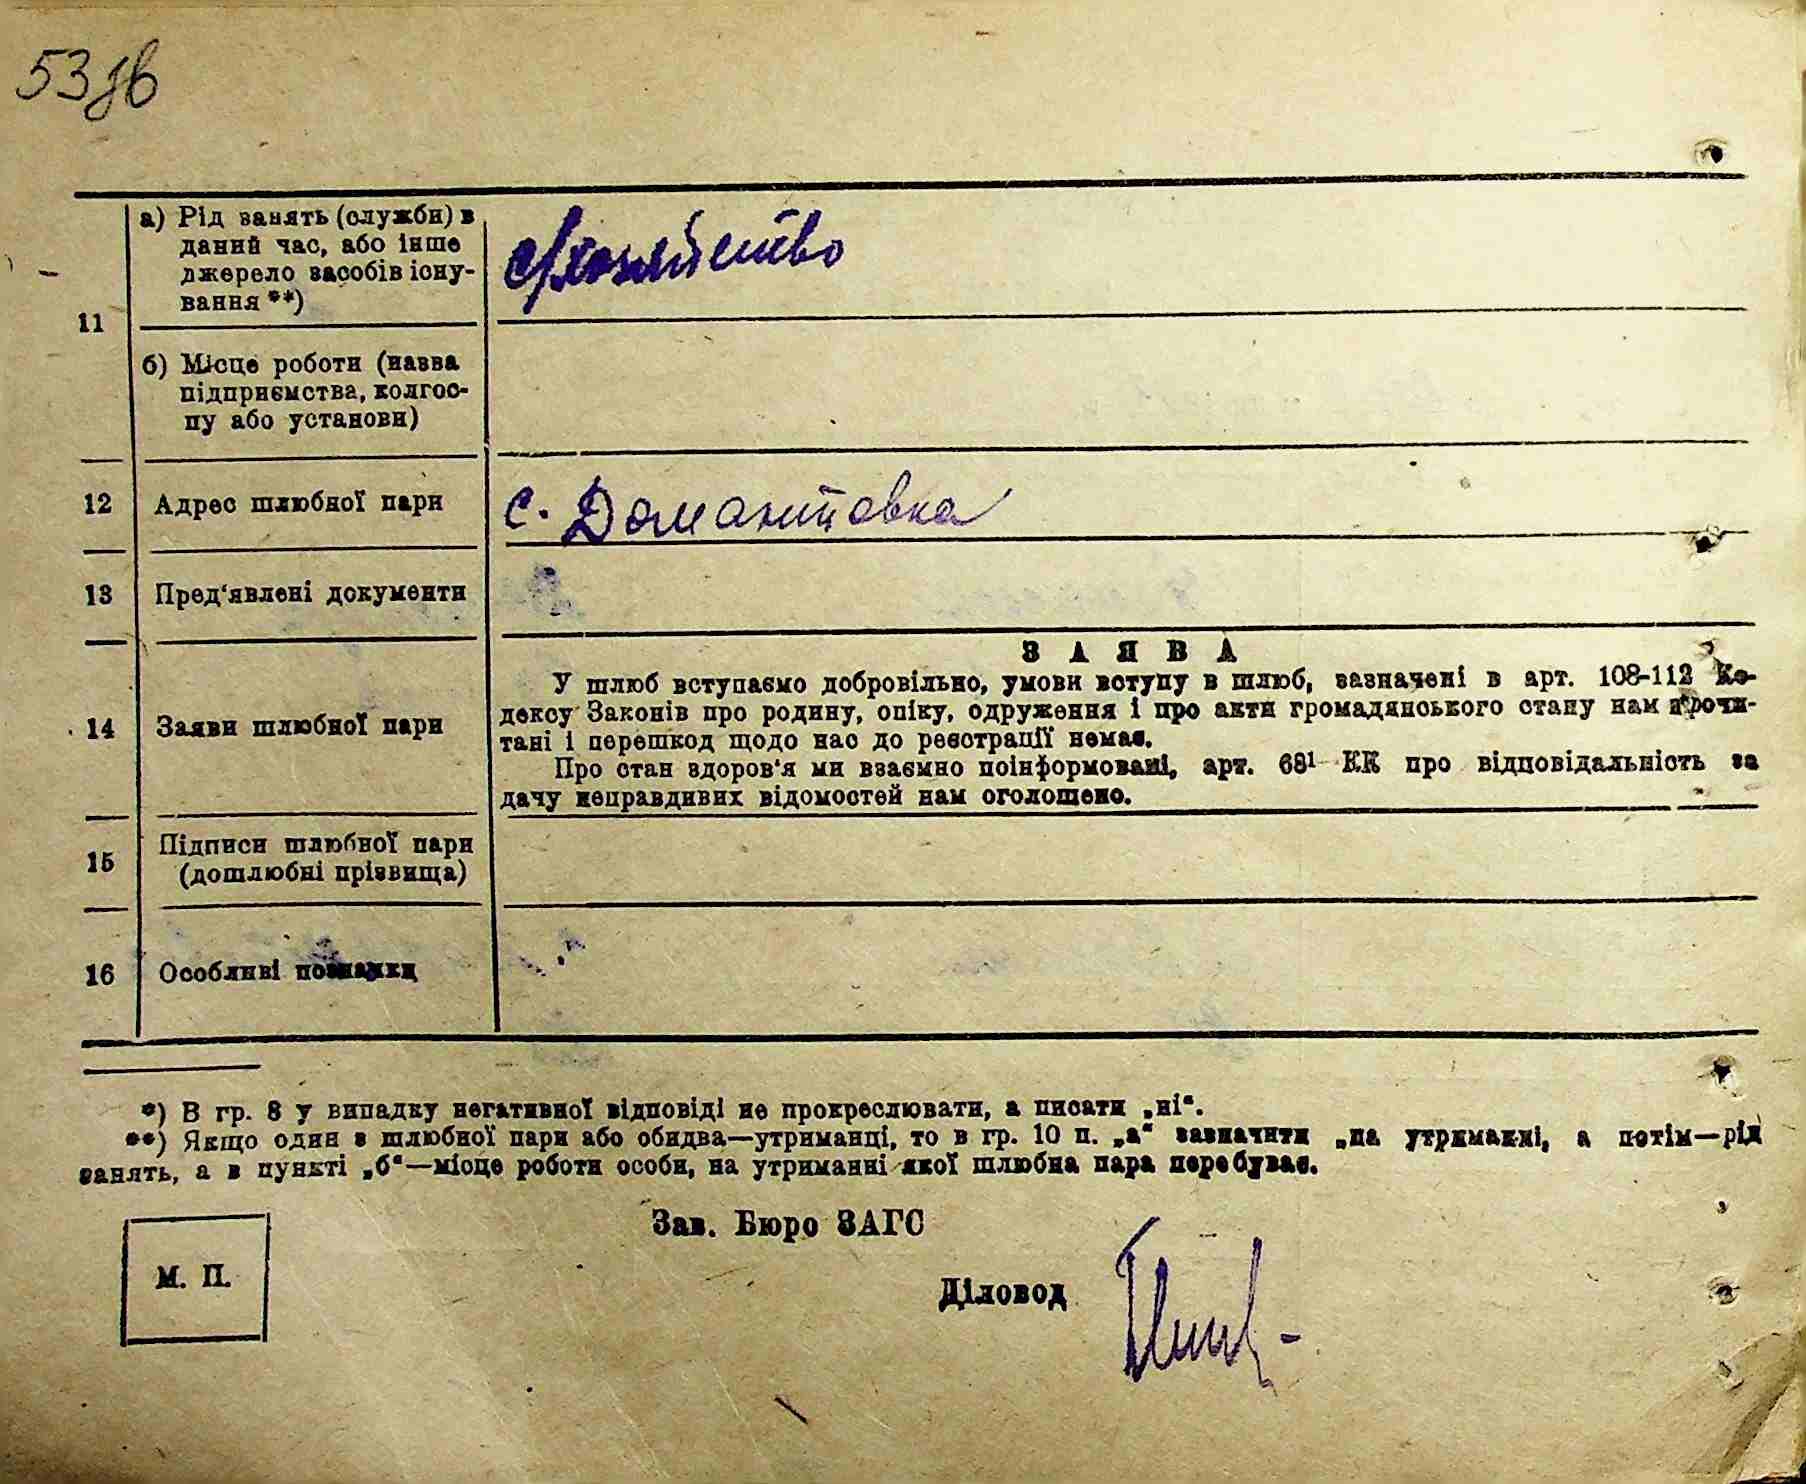 53зв
11
а) Рід занять (служби) в
даний час, або інше
джерело засобів існу-
вання **)
с/хозяйство
б) Місце роботи (назва
підприємства, колгос-
пу або установи)
12
Адрес шлюбної пари
с. Домантовка
13
Пред'явлені документи
14
Заяви шлюбної пари
ЗАЯВА
У шлюб вступаємо добровільно, умови вступу в шлюб, зазначені в арт. 108-112 Ко-
дексу Законів про родину, опіку, одруження і про акти громадянського стану нам прочи-
тані і перешкод щодо нас до реєстрації немає.
Про стан здоров'я ми взаємно поінформовані, арт. 68¹ КК про відповідальність за
дачу неправдивих відомостей нам оголошено.
15
Підписи шлюбної пари
(дошлюбні прізвища)
16
Особливі познаки
*) В гр. 8 у випадку негативної відповіді не прокреслювати, а писати „ні“.
**) Якщо один з шлюбної пари або обидва—утриманці, то в гр. 10 п. „а“ зазначити „на утриманні, а потім—рід
занять, а в пункті „б“—місце роботи особи, на утриманні якої шлюбна пара перебуває.
Зав. Бюро ЗАГС
М. П.
Діловод